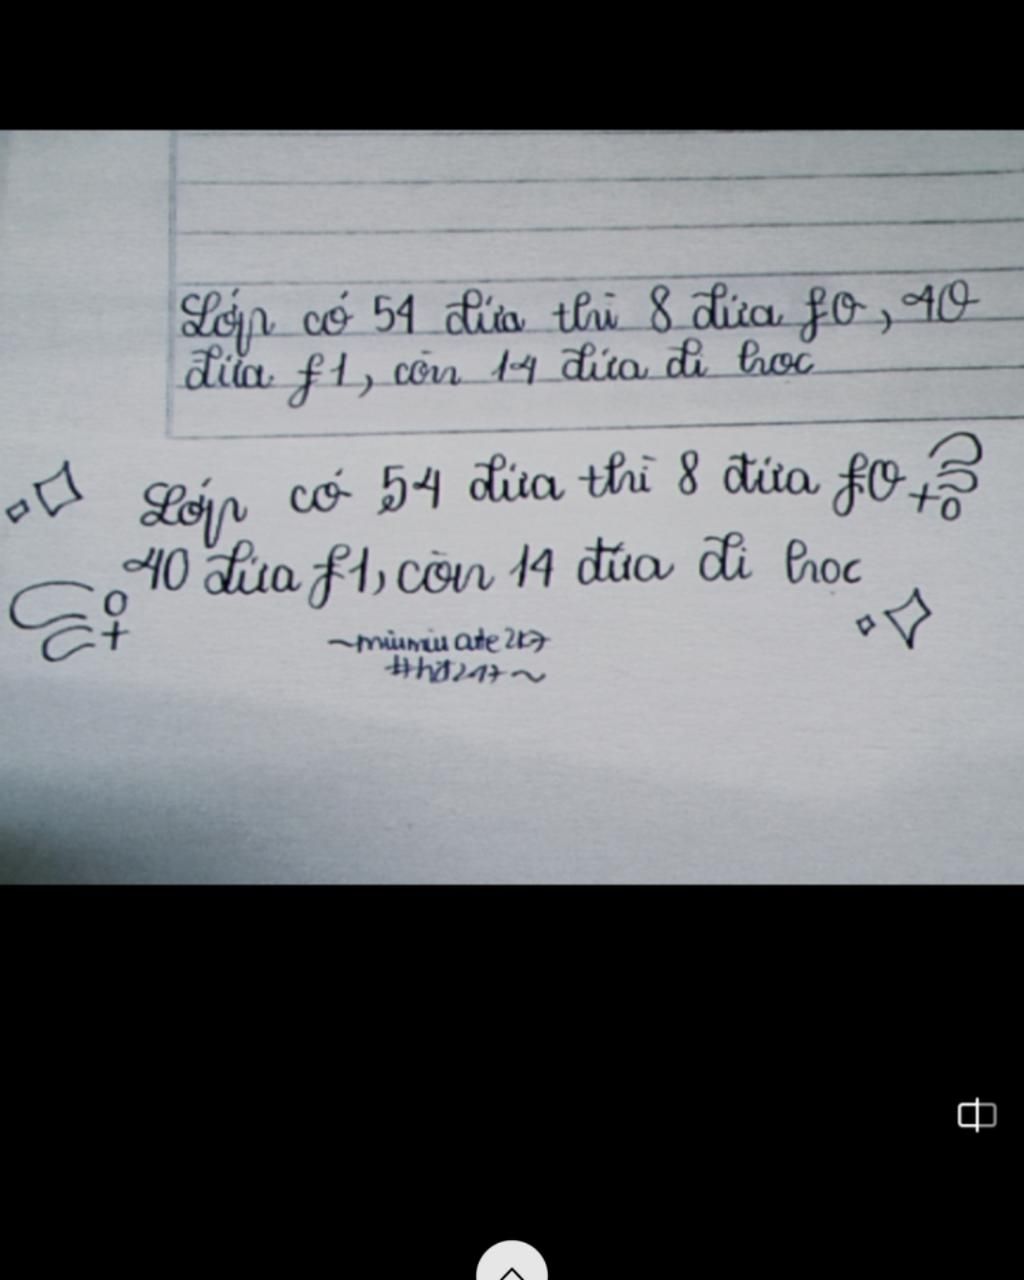 Lớp có 54 đứa thì 8 đứa f0, 40
đứa f1, còn 14 đứa đi học
Lớp có 54 đứa thì 8 đứa f0
40 đứa f1, còn 14 đứa đi học
~miumiu